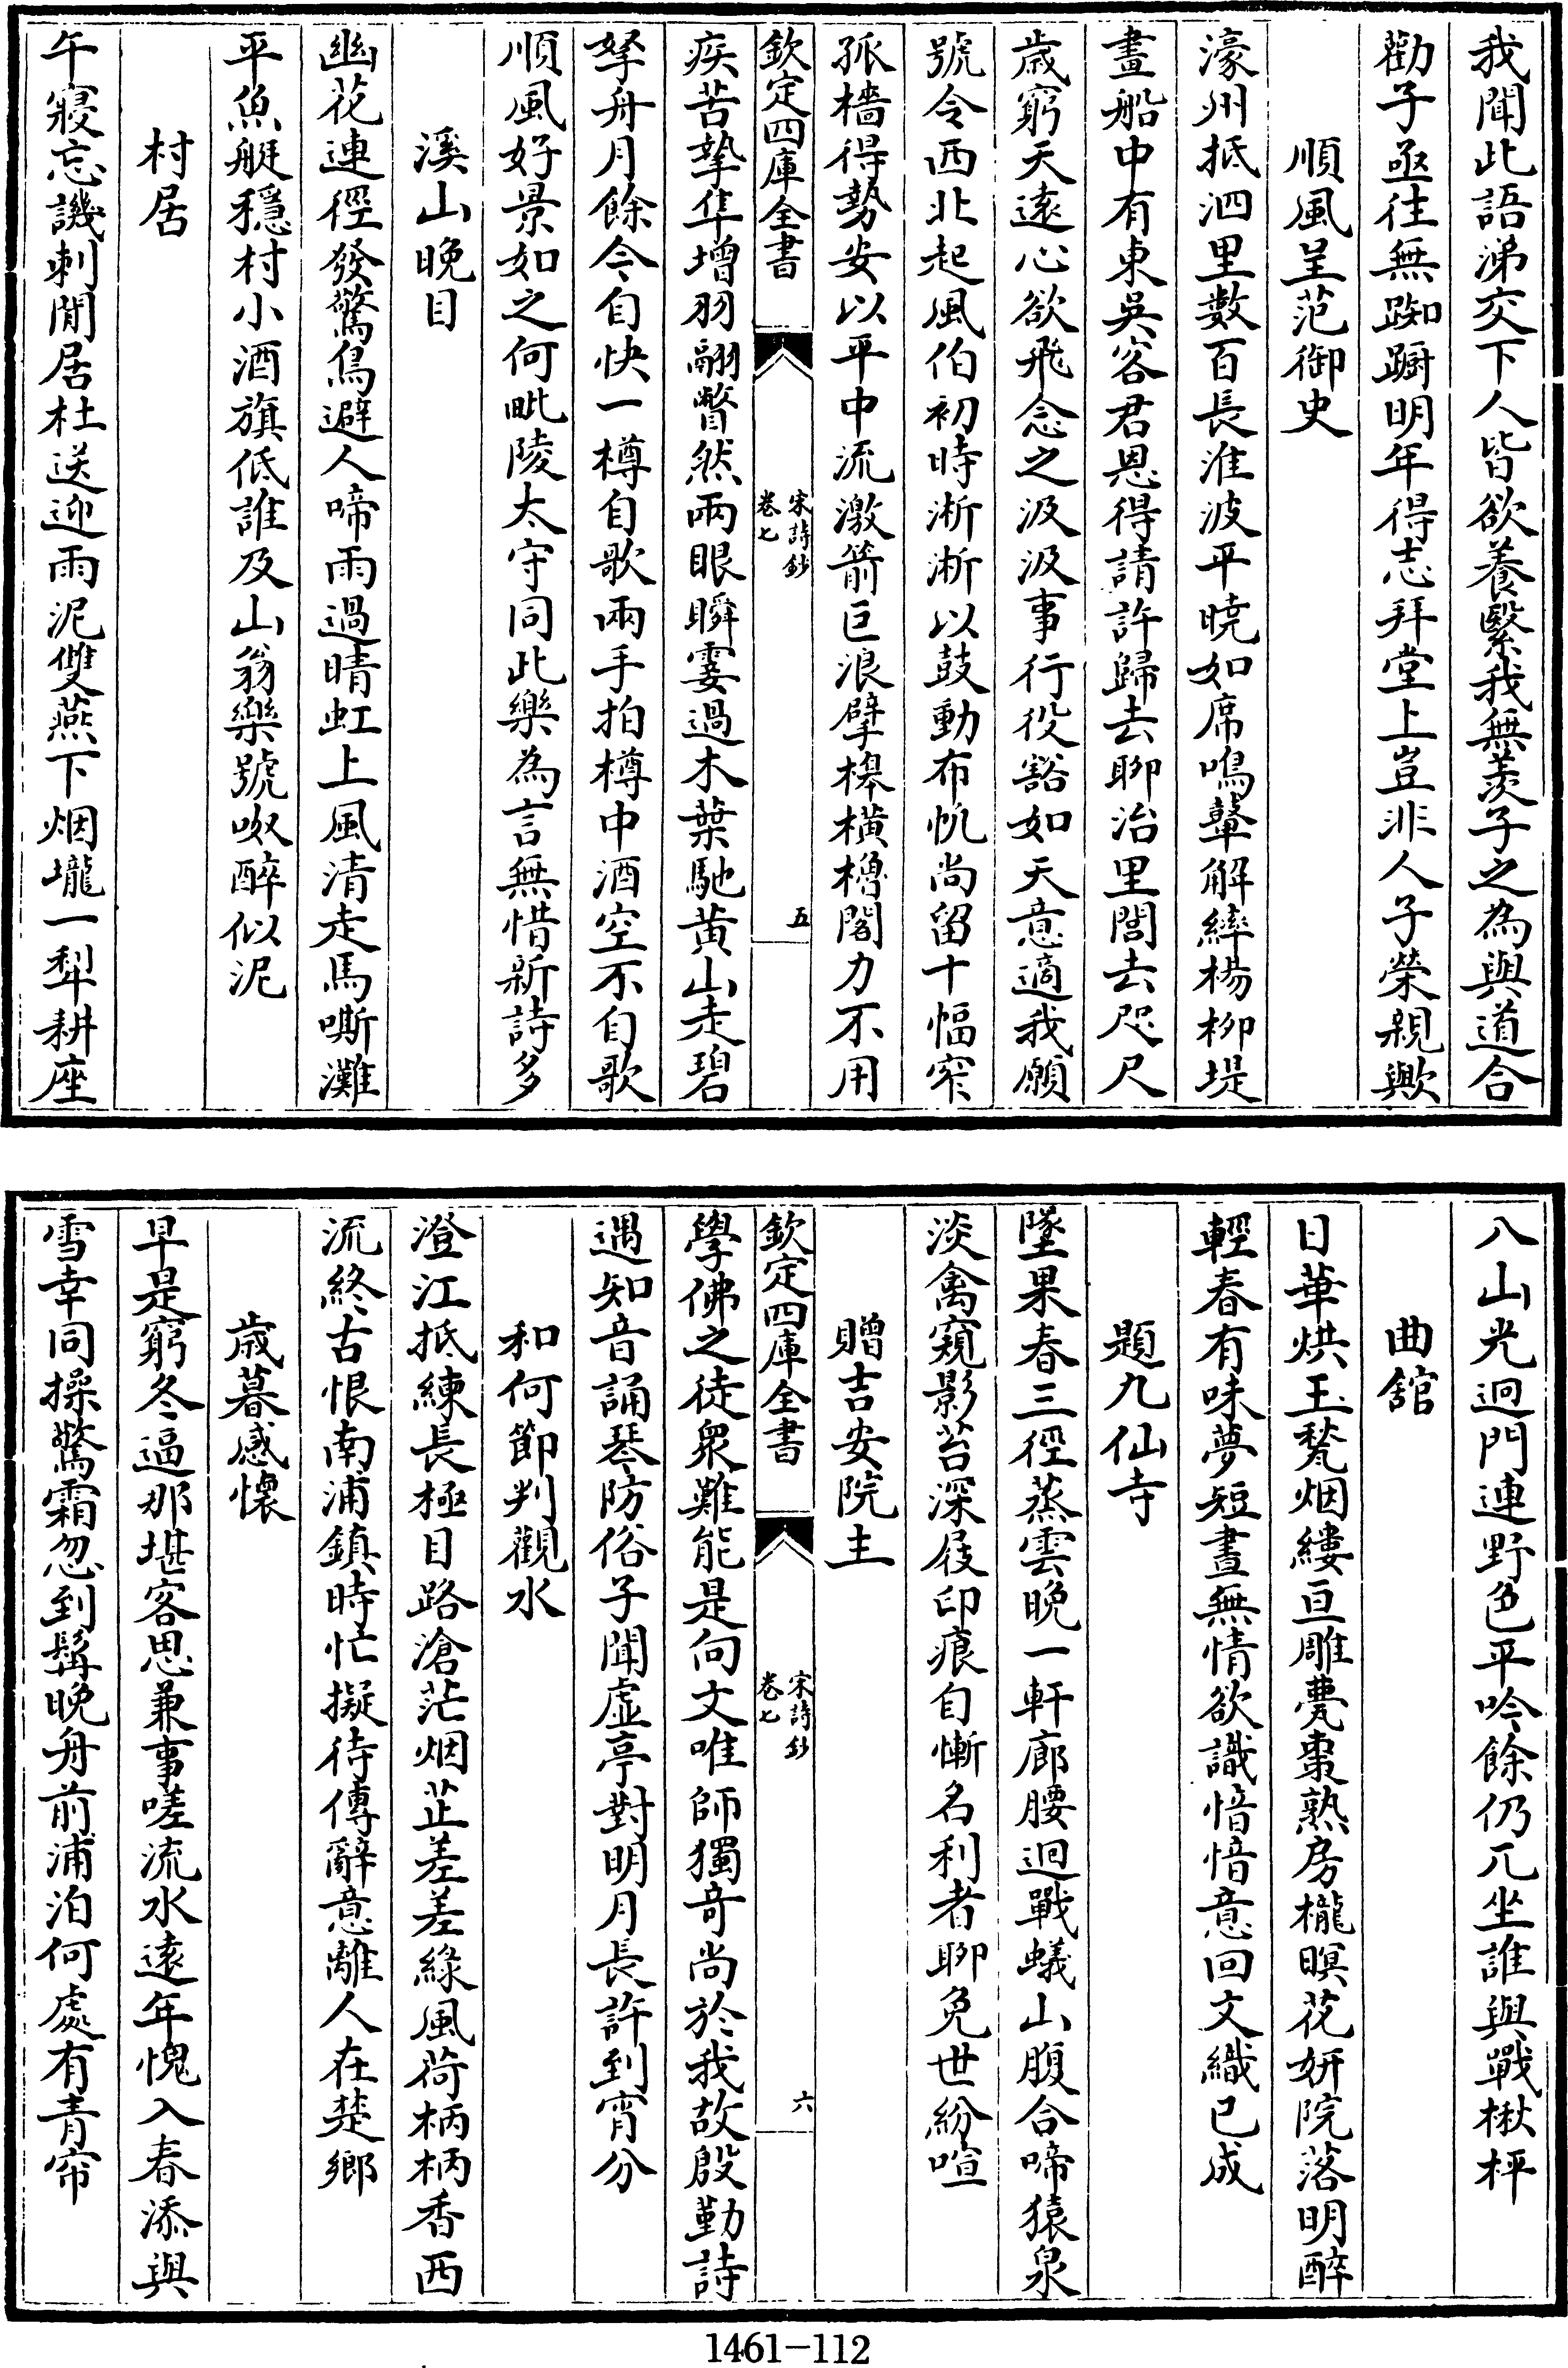 我聞此語涕交下人皆欲養繄我無羨子之為與道合
勸子亟往無踟蹰明年得志拜堂上豈非人子榮親歟
順風呈范御史
濠州抵泗里數百長淮波平曉如席鳴鼙解縴楊柳堤
畫船中有東吳客君恩得請許歸去聊治里閭去咫尺
歲窮天遠心欲飛念之汲汲事行役豁如天意適我願
號令西北起風伯初時淅淅以鼓動布帆尚留十幅窄
孤檣得勢安以平中流激箭巨浪擘槔橫櫓閣力不用
欽定四庫全書
宋詩鈔
卷七
五
疾苦摯隼增羽翮瞥然兩眼瞬霎過木葉馳黃山走碧
拏舟月餘今自快一樽自歌兩手拍樽中酒空不自歌
順風好景如之何毗陵太守同此樂為言無惜新詩多
溪山晚目
幽花連徑發驚鳥避人啼雨過晴虹上風清走馬嘶灘
平魚艇穩村小酒旗低誰及山翁樂號呶醉似泥
村居
午寢忘譏刺閒居杜送迎雨泥雙燕下烟壠一犁耕座
八山光迥門連野色平吟餘仍兀坐誰與戰楸枰
曲舘
日華烘玉甃烟縷亘雕甍棗熟房櫳暝花妍院落明醉
輕春有味夢短晝無情欲識愔愔意回文織已成
題九仙寺
墜果春三徑蒸雲晚一軒廊腰迴戰蟻山腹合啼猿泉
淡禽窺影苔深屐印痕自慚名利者聊免世紛喧
贈吉安院主
欽定四庫全書
宋詩鈔
卷七
六
學佛之徒衆難能是向文唯師獨奇尚於我故殷勤詩
遇知音誦琴防俗子聞虛亭對明月長許到宵分
和何節判觀水
澄江抵練長極目路滄茫烟芷差差綠風荷柄柄香西
流終古恨南浦鎮時忙擬待傳辭意離人在楚鄉
歲暮感懷
早是窮冬逼那堪客思兼事嗟流水遠年愧入春添與
雪幸同操驚霜忽到髯晚舟前浦泊何處有青帘
1461-112